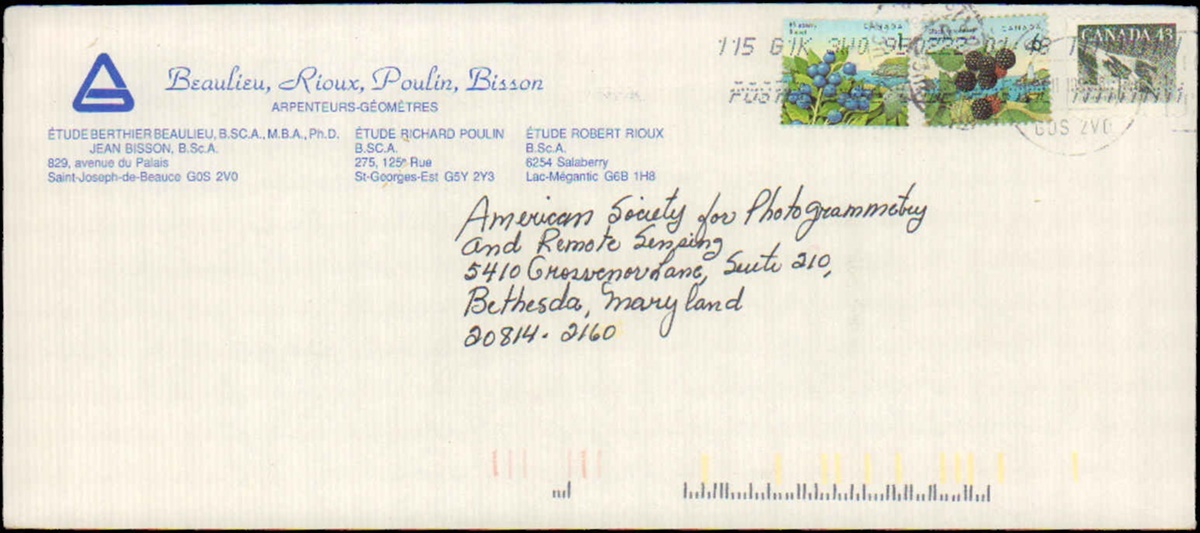 Beaulieu, Rioux, Poulin, Bisson
ARPENTEURS-GÉOMÈTRES
ÉTUDE BERTHIER BEAULIEU, B.SC.A., M.B.A., Ph.D.
JEAN BISSON, B.Sc.A.
829, avenue du Palais
Saint-Joseph-de-Beauce G0S 2V0
ÉTUDE RICHARD POULIN
B.SC.A.
275, 125e Rue
St-Georges-Est G5Y 2Y3
ÉTUDE ROBERT RIOUX
B.Sc.A.
6254 Salaberry
Lac-Mégantic G6B 1H8
CANADA 1
CANADA
CANADA 43
115 G1K
G0S 2V0
American Society for Photogrammetry
and Remote Sensing
5410 Grosvenor Lane, Suite 210,
Bethesda, Maryland
20814-2160